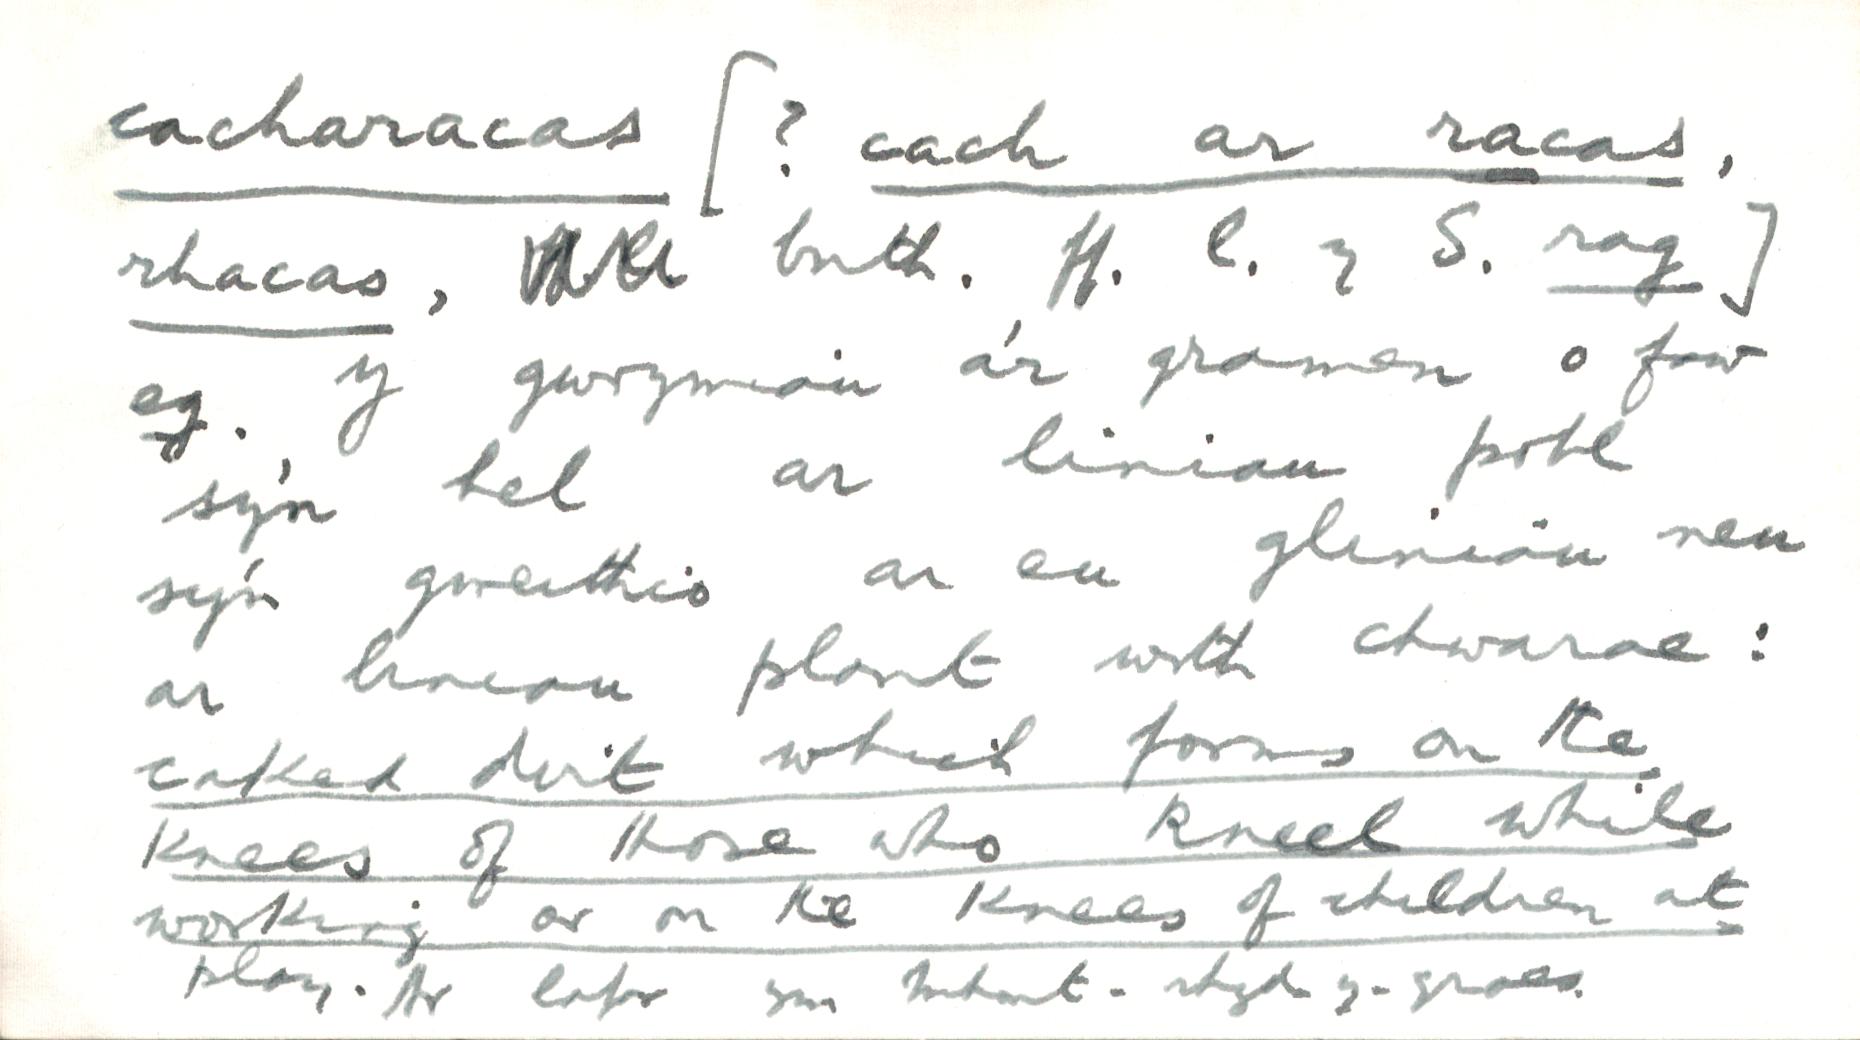 cacharacas [? cach ar racas,
rhacas, bnth. ff. l. y S. rag]
eg. y gwrymiau a'r gramen o faw
sy'n hel ar liniau pobl
sy'n gweithio ar eu gliniau neu
ar liniau plant wrth chwarae:
caked dirt which forms on the
knees of those who kneel while
working or on the knees of children at
play. Ar lafar ym Mhont-rhyd-y-groes.